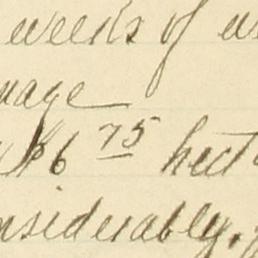 weeks of w
wage
$6 75 hect
nsiderably.